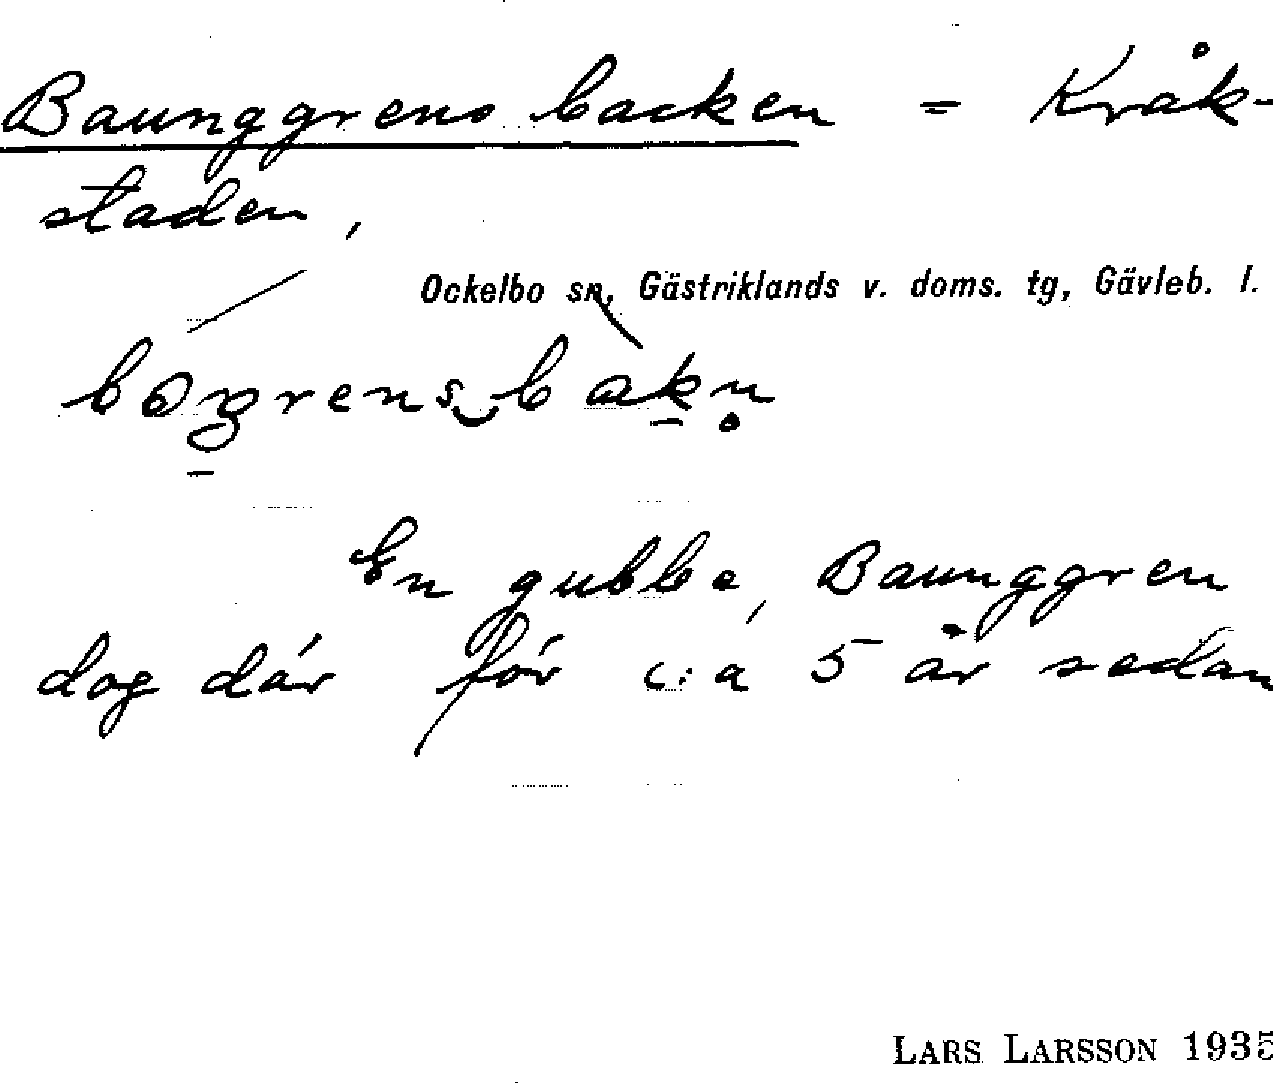 Baunggrens backen = Kråk-
staden,
Ockelbo sn, Gästriklands v. doms. tg, Gävleb. l.
En gubbe, Baunggren
dog där för c:a 5 år sedan
LARS LARSSON 1935